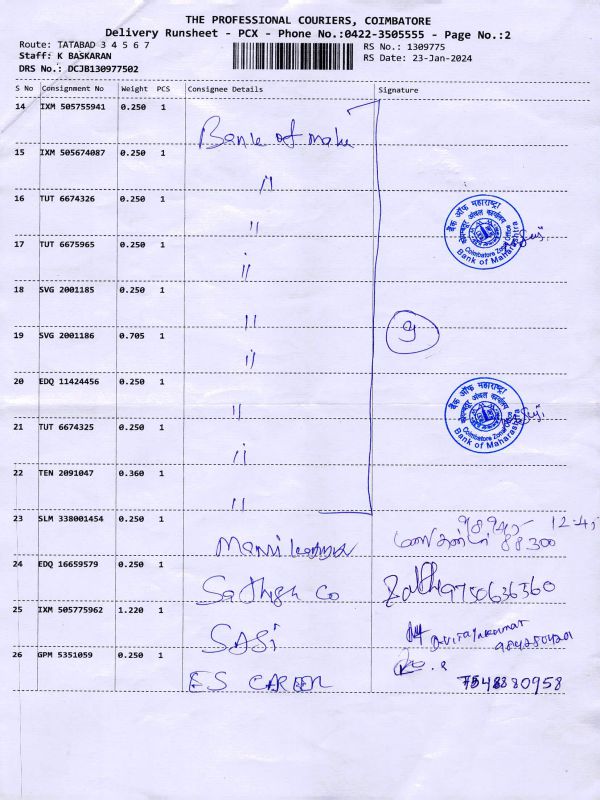 THE PROFESSIONAL COURIERS, COIMBATORE
Delivery Runsheet - PCX - Phone No.:0422-3505555 - Page No.:2
Route: TATABAD 3 4 5 6 7
RS No.: 1309775
Staff: K BASKARAN
RS Date: 23-Jan-2024
DRS No.: DCJB130977502
S No Consignment No Weight PCS Consignee Details Signature
14 IXM 505755941 0.250 1 Bank of
15 IXM 505674087 0.250 1 "
16 TUT 6674326 0.250 1 "
बैंक ऑफ महाराष्ट्र
Coimbatore Zonal Office
Bank of Maharashtra
17 TUT 6675965 0.250 1 "
18 SVG 2001185 0.250 1 "
19 SVG 2001186 0.705 1 "
9
20 EDQ 11424456 0.250 1 "
बैंक ऑफ महाराष्ट्र
Coimbatore Zonal Office
Bank of Maharashtra
21 TUT 6674325 0.250 1 "
22 TEN 2091047 0.360 1 "
23 SLM 338001454 0.250 1
24 EDQ 16659579 0.250 1 Sathish Co 9750636360
25 IXM 505775962 1.220 1 SASi
26 GPM 5351059 0.250 1 ES CAREER